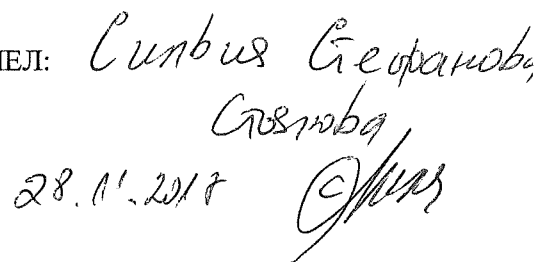 ЕЛ: Силвия Стефанова
Стоянова
28.11.2017